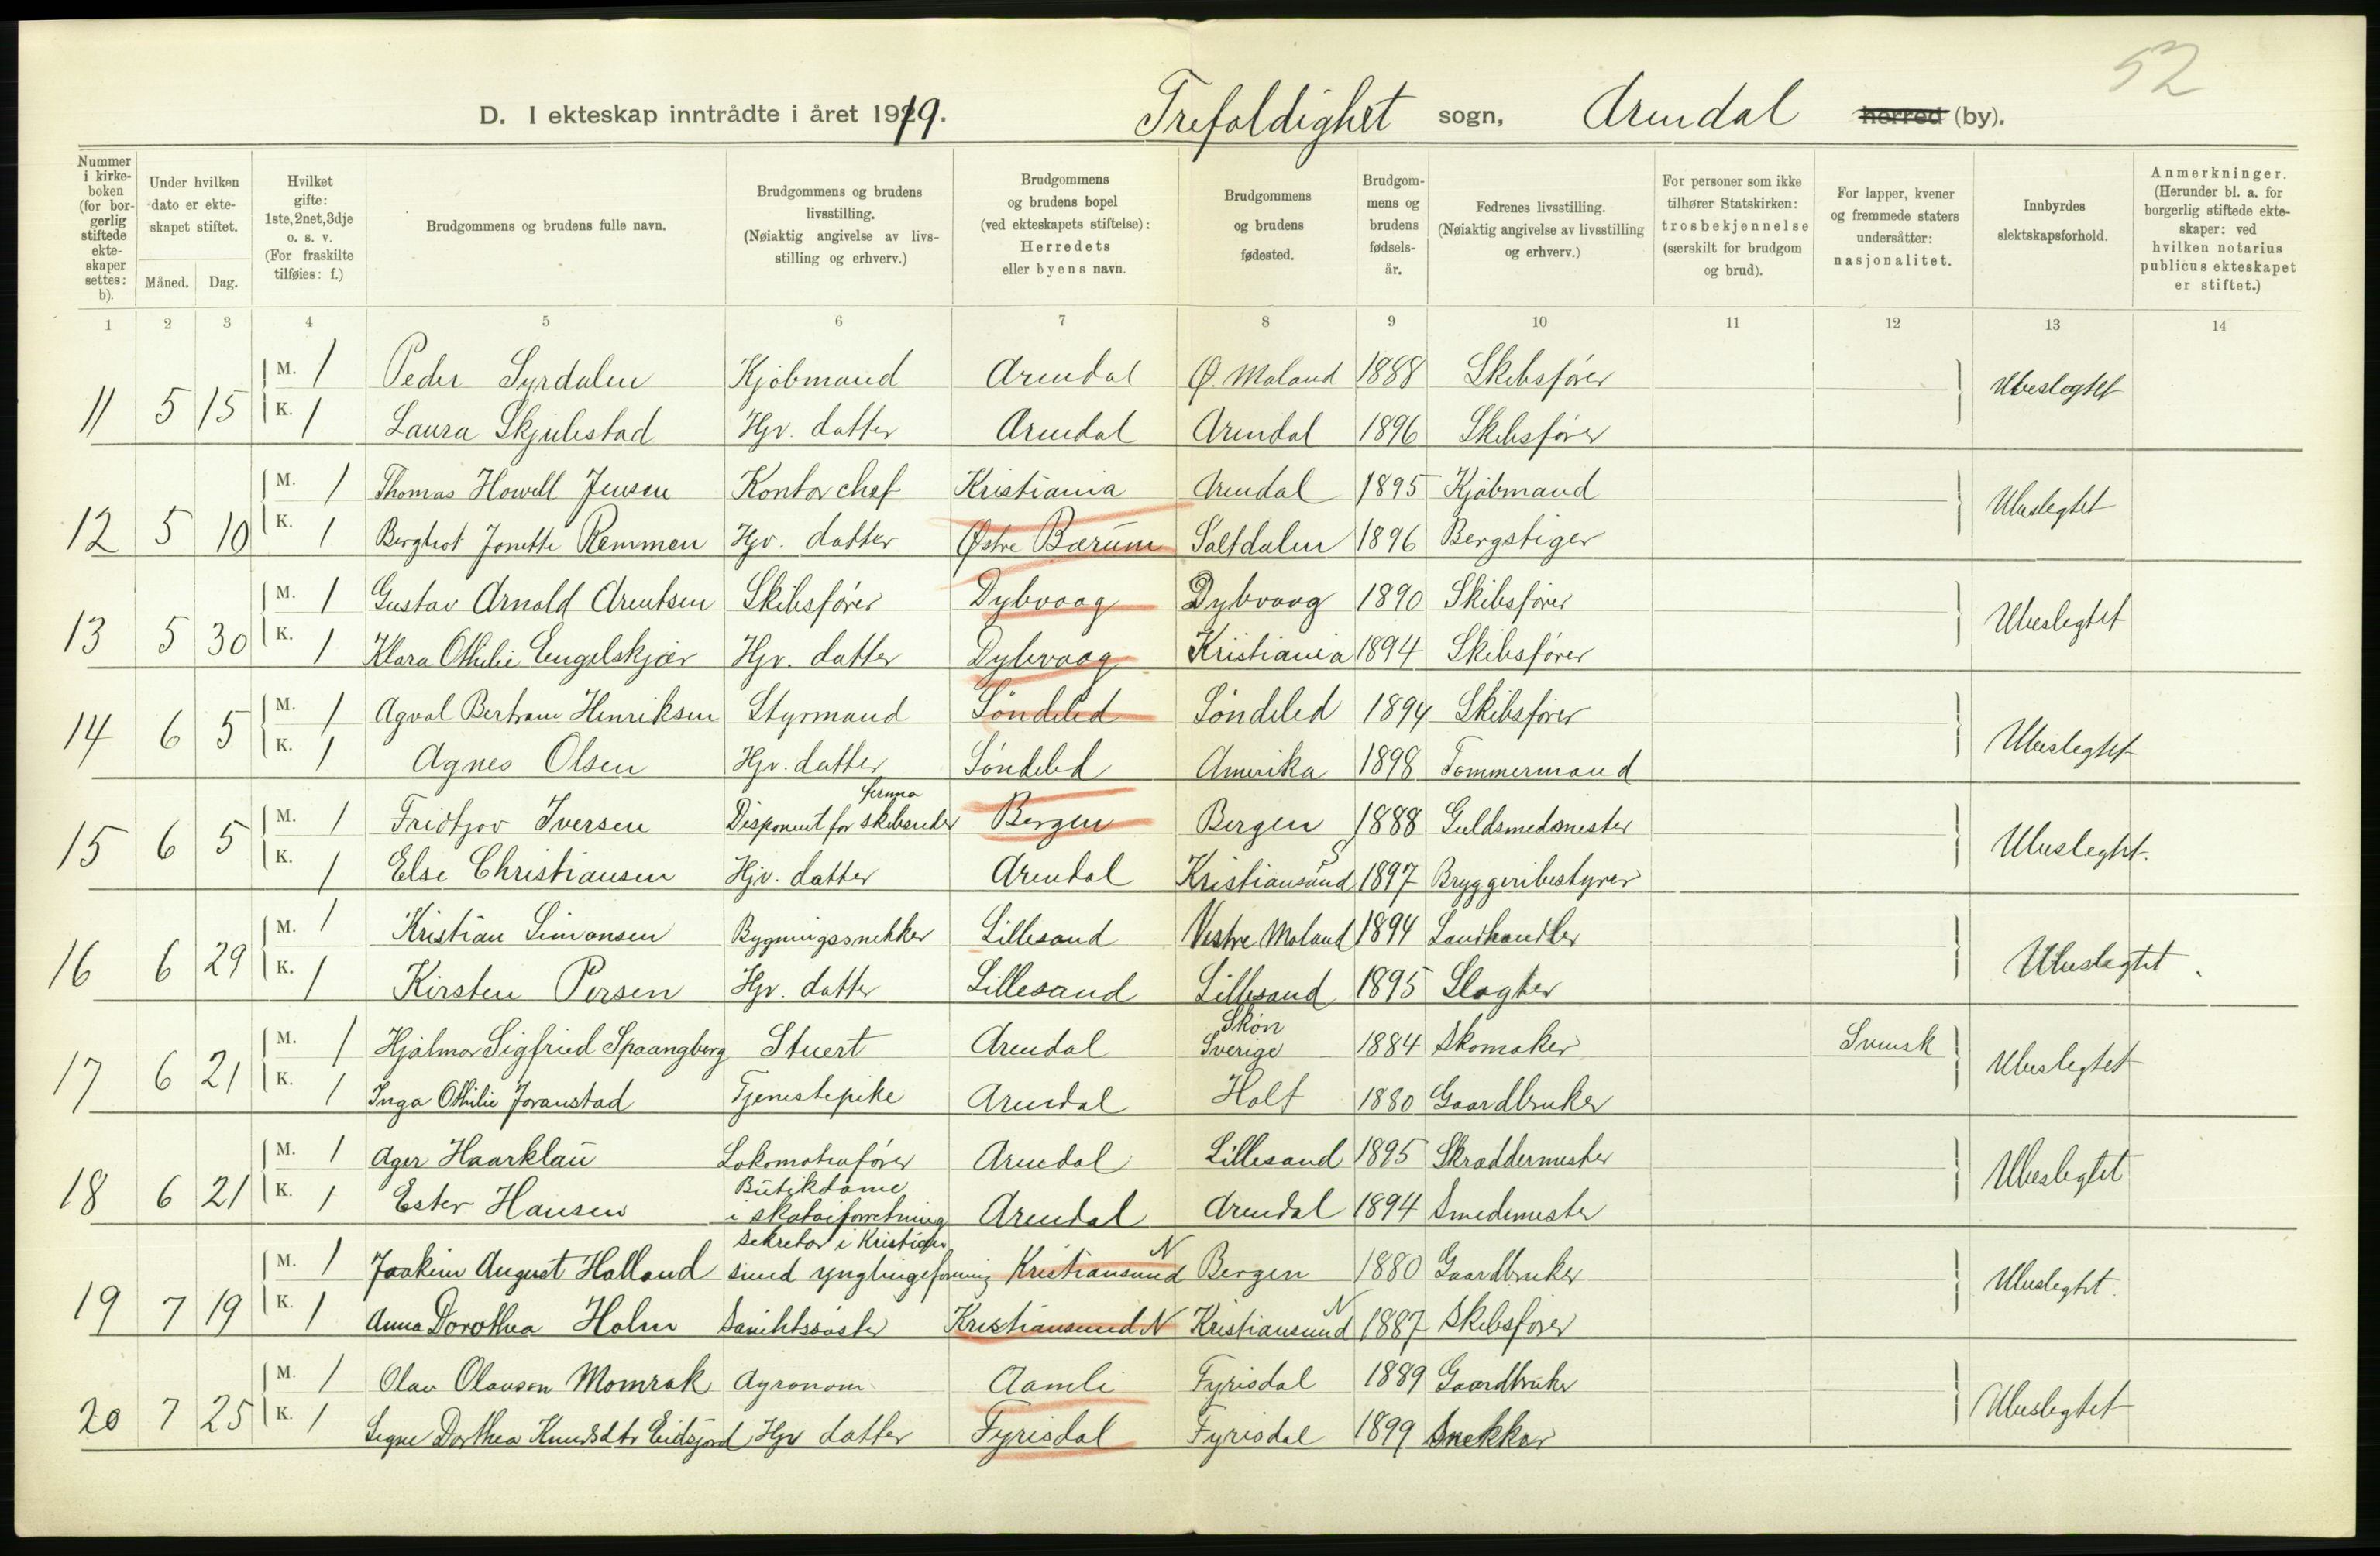 52
D. I ekteskap inntrådte i året 1919. Trefoldighet sogn, Arendal herred (by).
Nummer i kirke-boken (for bor-gerlig stiftede ekte-skaper settes: b).
Under hvilken dato er ekte-skapet stiftet.
Måned. Dag.
Hvilket gifte: 1ste, 2net, 3dje o. s. v. (For fraskilte tilføies: f.)
Brudgommens og brudens fulle navn.
Brudgommens og brudens livsstilling. (Nøiaktig angivelse av livs-stilling og erhverv.)
Brudgommens og brudens bopel (ved ekteskapets stiftelse): Herredets eller byens navn.
Brudgommens og brudens fødested.
Brudgom-mens og brudens fødsels-år.
Fedrenes livsstilling. (Nøiaktig angivelse av livsstilling og erhverv.)
For personer som ikke tilhører Statskirken: trosbekjennelse (særskilt for brudgom og brud).
For lapper, kvener og fremmede staters undersåtter: nasjonalitet.
Innbyrdes slektskapsforhold.
Anmerkninger. (Herunder bl. a. for borgerlig stiftede ekte-skaper: ved hvilken notarius publicus ekteskapet er stiftet.)
1 2 3 4 5 6 7 8 9 10 11 12 13 14
M. 1 Peder Syrdalen Kjøbmand Arendal Ø. Moland 1888 Skibsfører
11 5 15 K. 1 Laura Skjulestad Hjv. datter Arendal Arendal 1896 Skibsfører Ubeslegtet
M. 1 Thomas Howell Jensen Kontorchef Kristiania Arendal 1895 Kjøbmand
12 5 10 K. 1 Bergliot Jonette Remmen Hjv. datter Østre Bærum Saltdalen 1896 Bergstiger Ubeslegtet
M. 1 Gustav Arnold Arentsen Skibsfører Dybvaag Dybvaag 1890 Skibsfører
13 5 30 K. 1 Klara Othilie Engelskjær Hjv. datter Dybvaag Kristiania 1894 Skibsfører Ubeslegtet
M. 1 Agval Bertram Henriksen Styrmand Søndeled Søndeled 1894 Skibsfører
14 6 5 K. 1 Agnes Olsen Hjv. datter Søndeled Amerika 1898 Tømmermand Ubeslegtet
M. 1 Fridtjov Iversen Disponent for skibsrederfirma Bergen Bergen 1888 Guldsmedmester
15 6 5 K. 1 Else Christiansen Hjv. datter Arendal Kristiansand S 1897 Bryggeribestyrer Ubeslegtet.
M. 1 Kristian Simonsen Bygningssnekker Lillesand Vestre Moland 1894 Landhandler
16 6 29 K. 1 Kirsten Persen Hjv. datter Lillesand Lillesand 1895 Slagter Ubeslegtet.
M. 1 Hjalmar Sigfried Spaangberg Stuert Arendal Skön Sverige 1884 Skomaker Svensk
17 6 21 K. 1 Inga Othilie Joranstad Tjenestepike Arendal Holt 1880 Gaardbruker Ubeslegtet
M. 1 Ager Haarklau Lokomotivfører Arendal Lillesand 1895 Skræddermester
18 6 21 K. 1 Ester Hansen Butikdame i skotøiforretning Arendal Arendal 1894 Smedemester Ubeslegtet
M. 1 Joakim August Holland Sekretær i Kristiansund ynglingeforening Kristiansund N Bergen 1880 Gaardbruker
19 7 19 K. 1 Anna Dorothea Holm Kristiansund N Kristiansund N 1887 Skibsfører Ubeslegtet.
M. 1 Olav Olavsen Momrak Agronom Aamli Fyrisdal 1889 Gaardbruker
20 7 25 K. 1 Signe Dorthea Knudsdtr Eidsjord Hjv datter Fyrisdal Fyrisdal 1899 Snekker Ubeslegtet